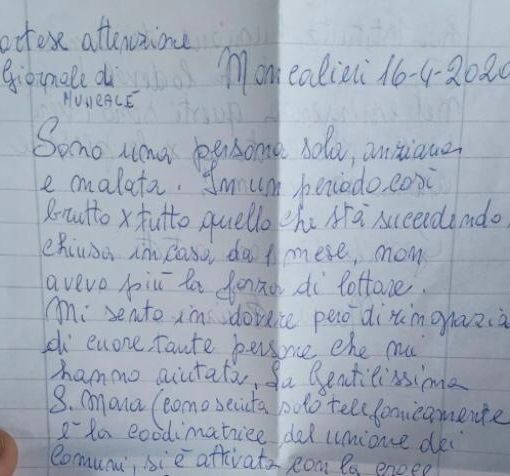 ortese attenzione
Giornale di Moncalieri 16-4-2020
MUNCALÈ
Sono una persona sola, anziana
e malata. In un periodo così
brutto x tutto quello che stà succedendo
chiusa in casa da 1 mese, non
avevo più la forza di lottare.
Mi sento in dovere però di ringrazia
di cuore tante persone che mi
hanno aiutata. La Gentilissima
S. Mara (conosciuta solo telefonicamente
è la coodinatrice del unione dei
Comuni, si è attivata con la croce